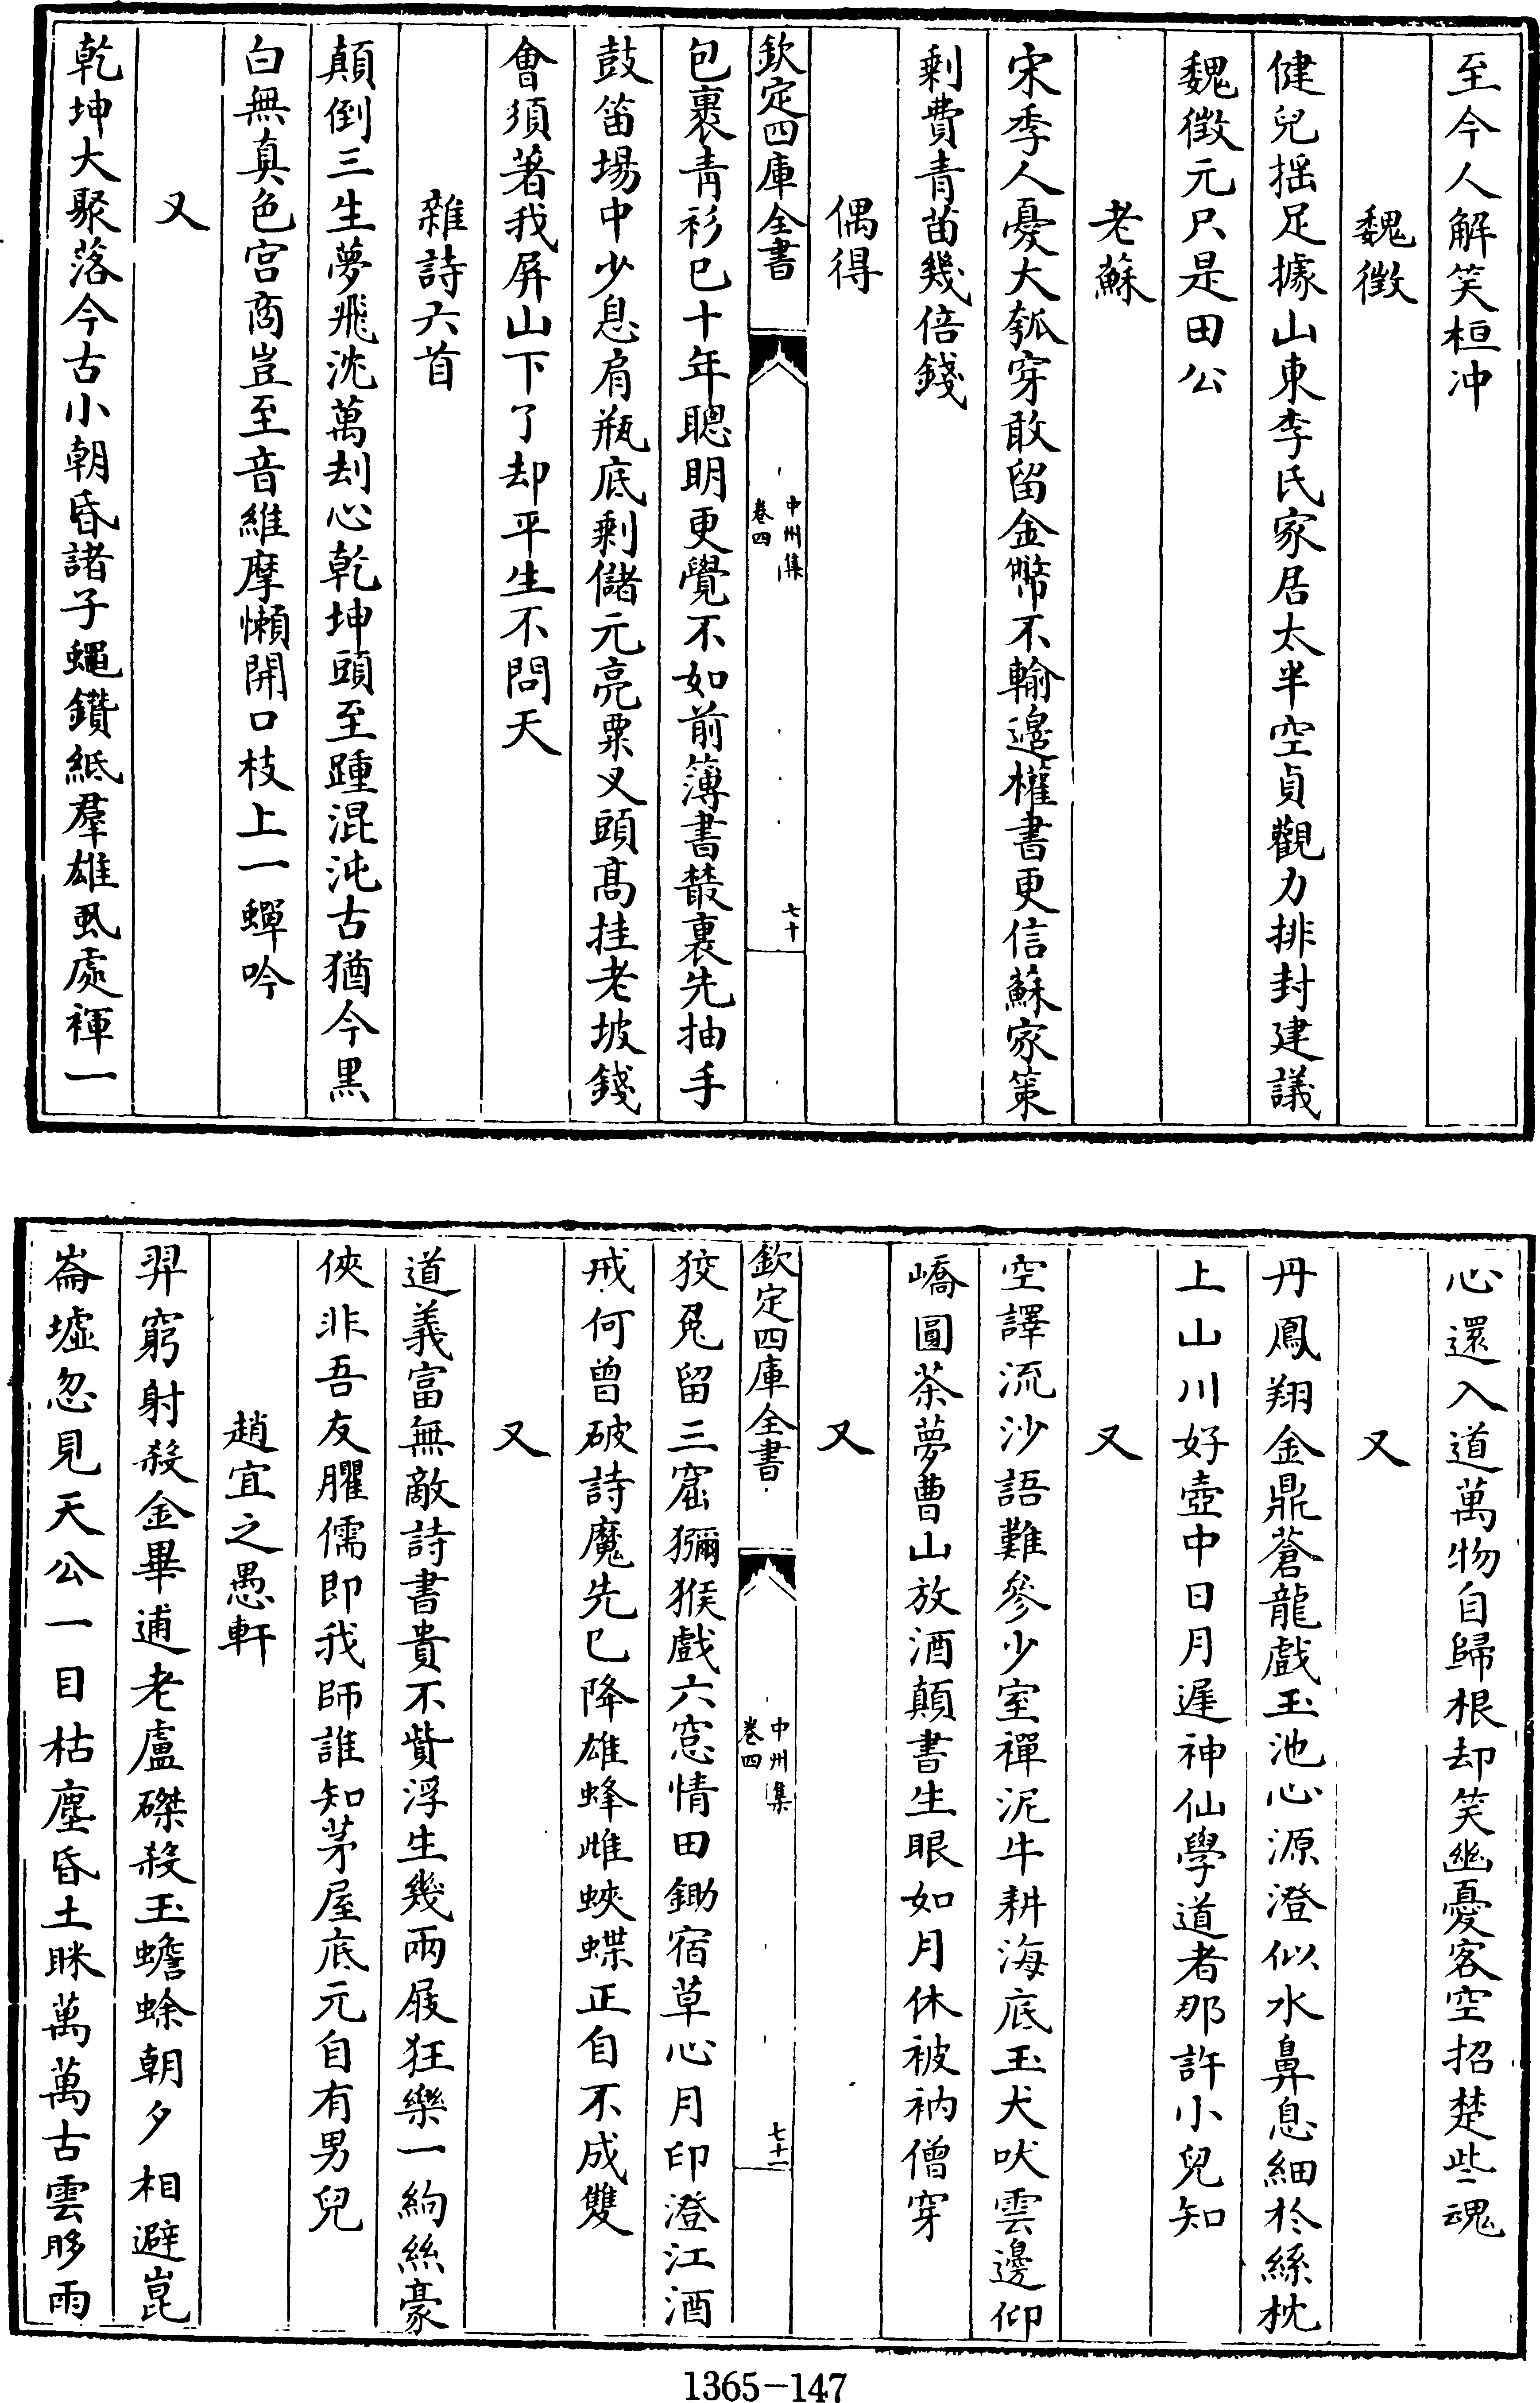 至今人解笑桓冲
魏徵
健兒揺足據山東李氏家居太半空貞觀力排封建議
魏徵元只是田公
老蘇
宋季人憂大瓠穿敢留金幣不輸邉權書更信蘇家策
剩費青苗幾倍錢
偶得
欽定四庫全書
中州集
卷四
七十
包裹青衫已十年聰明更覺不如前簿書叢裏先抽手
鼓笛塲中少息肩瓶底剩儲元亮粟叉頭髙挂老坡錢
會須著我屏山下了却平生不問天
雜詩六首
顛倒三生夢飛沈萬刦心乾坤頭至踵混沌古猶今黒
白無真色宫商豈至音維摩懶開口枝上一蟬吟
又
乾坤大聚落今古小朝昏諸子蠅鑽紙羣雄虱處褌一
心還入道萬物自歸根却笑幽憂客空招楚些魂
又
丹鳳翔金鼎蒼龍戲玉池心源澄似水鼻息細於絲枕
上山川好壺中日月遲神仙學道者那許小兒知
又
空譯流沙語難參少室禪泥牛耕海底玉犬吠雲邊仰
嶠圓茶夢曹山放酒顛書生眼如月休被衲僧穿
又
欽定四庫全書
中州集
卷四
七十一
狡兎留三窟獼猴戲六窓情田鋤宿草心月印澄江酒
戒何曾破詩魔先已降雄蜂雌蛺蝶正自不成雙
又
道義富無敵詩書貴不貲浮生幾兩屐狂樂一絇絲豪
俠非吾友臞儒即我師誰知茅屋底元自有男兒
趙宜之愚軒
羿窮射殺金畢逋老盧磔殺玉蟾蜍朝夕相避崑
崙墟忽見天公一目枯塵昏土眯萬萬古雲眵雨
1365-147